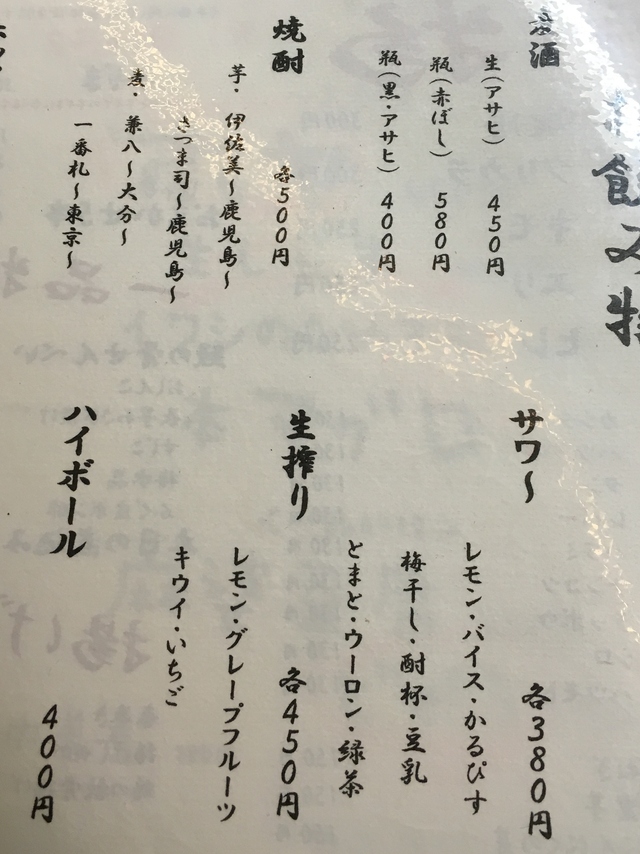 飲み物
酒
生（アサヒ） 450円
瓶（赤ぼし） 580円
瓶（黒・アサヒ） 400円
焼酎
各500円
芋・ 伊佐美～鹿児島～
さつま司～鹿児島～
兼八～大分～
一番札～東京～
サワ～
各380円
レモン・バイス・かるぴす
梅干し・酎杯・豆乳
とまと・ウーロン・緑茶
生搾り
各450円
レモン・グレープフルーツ
キウイ・いちご
ハイボール
400円